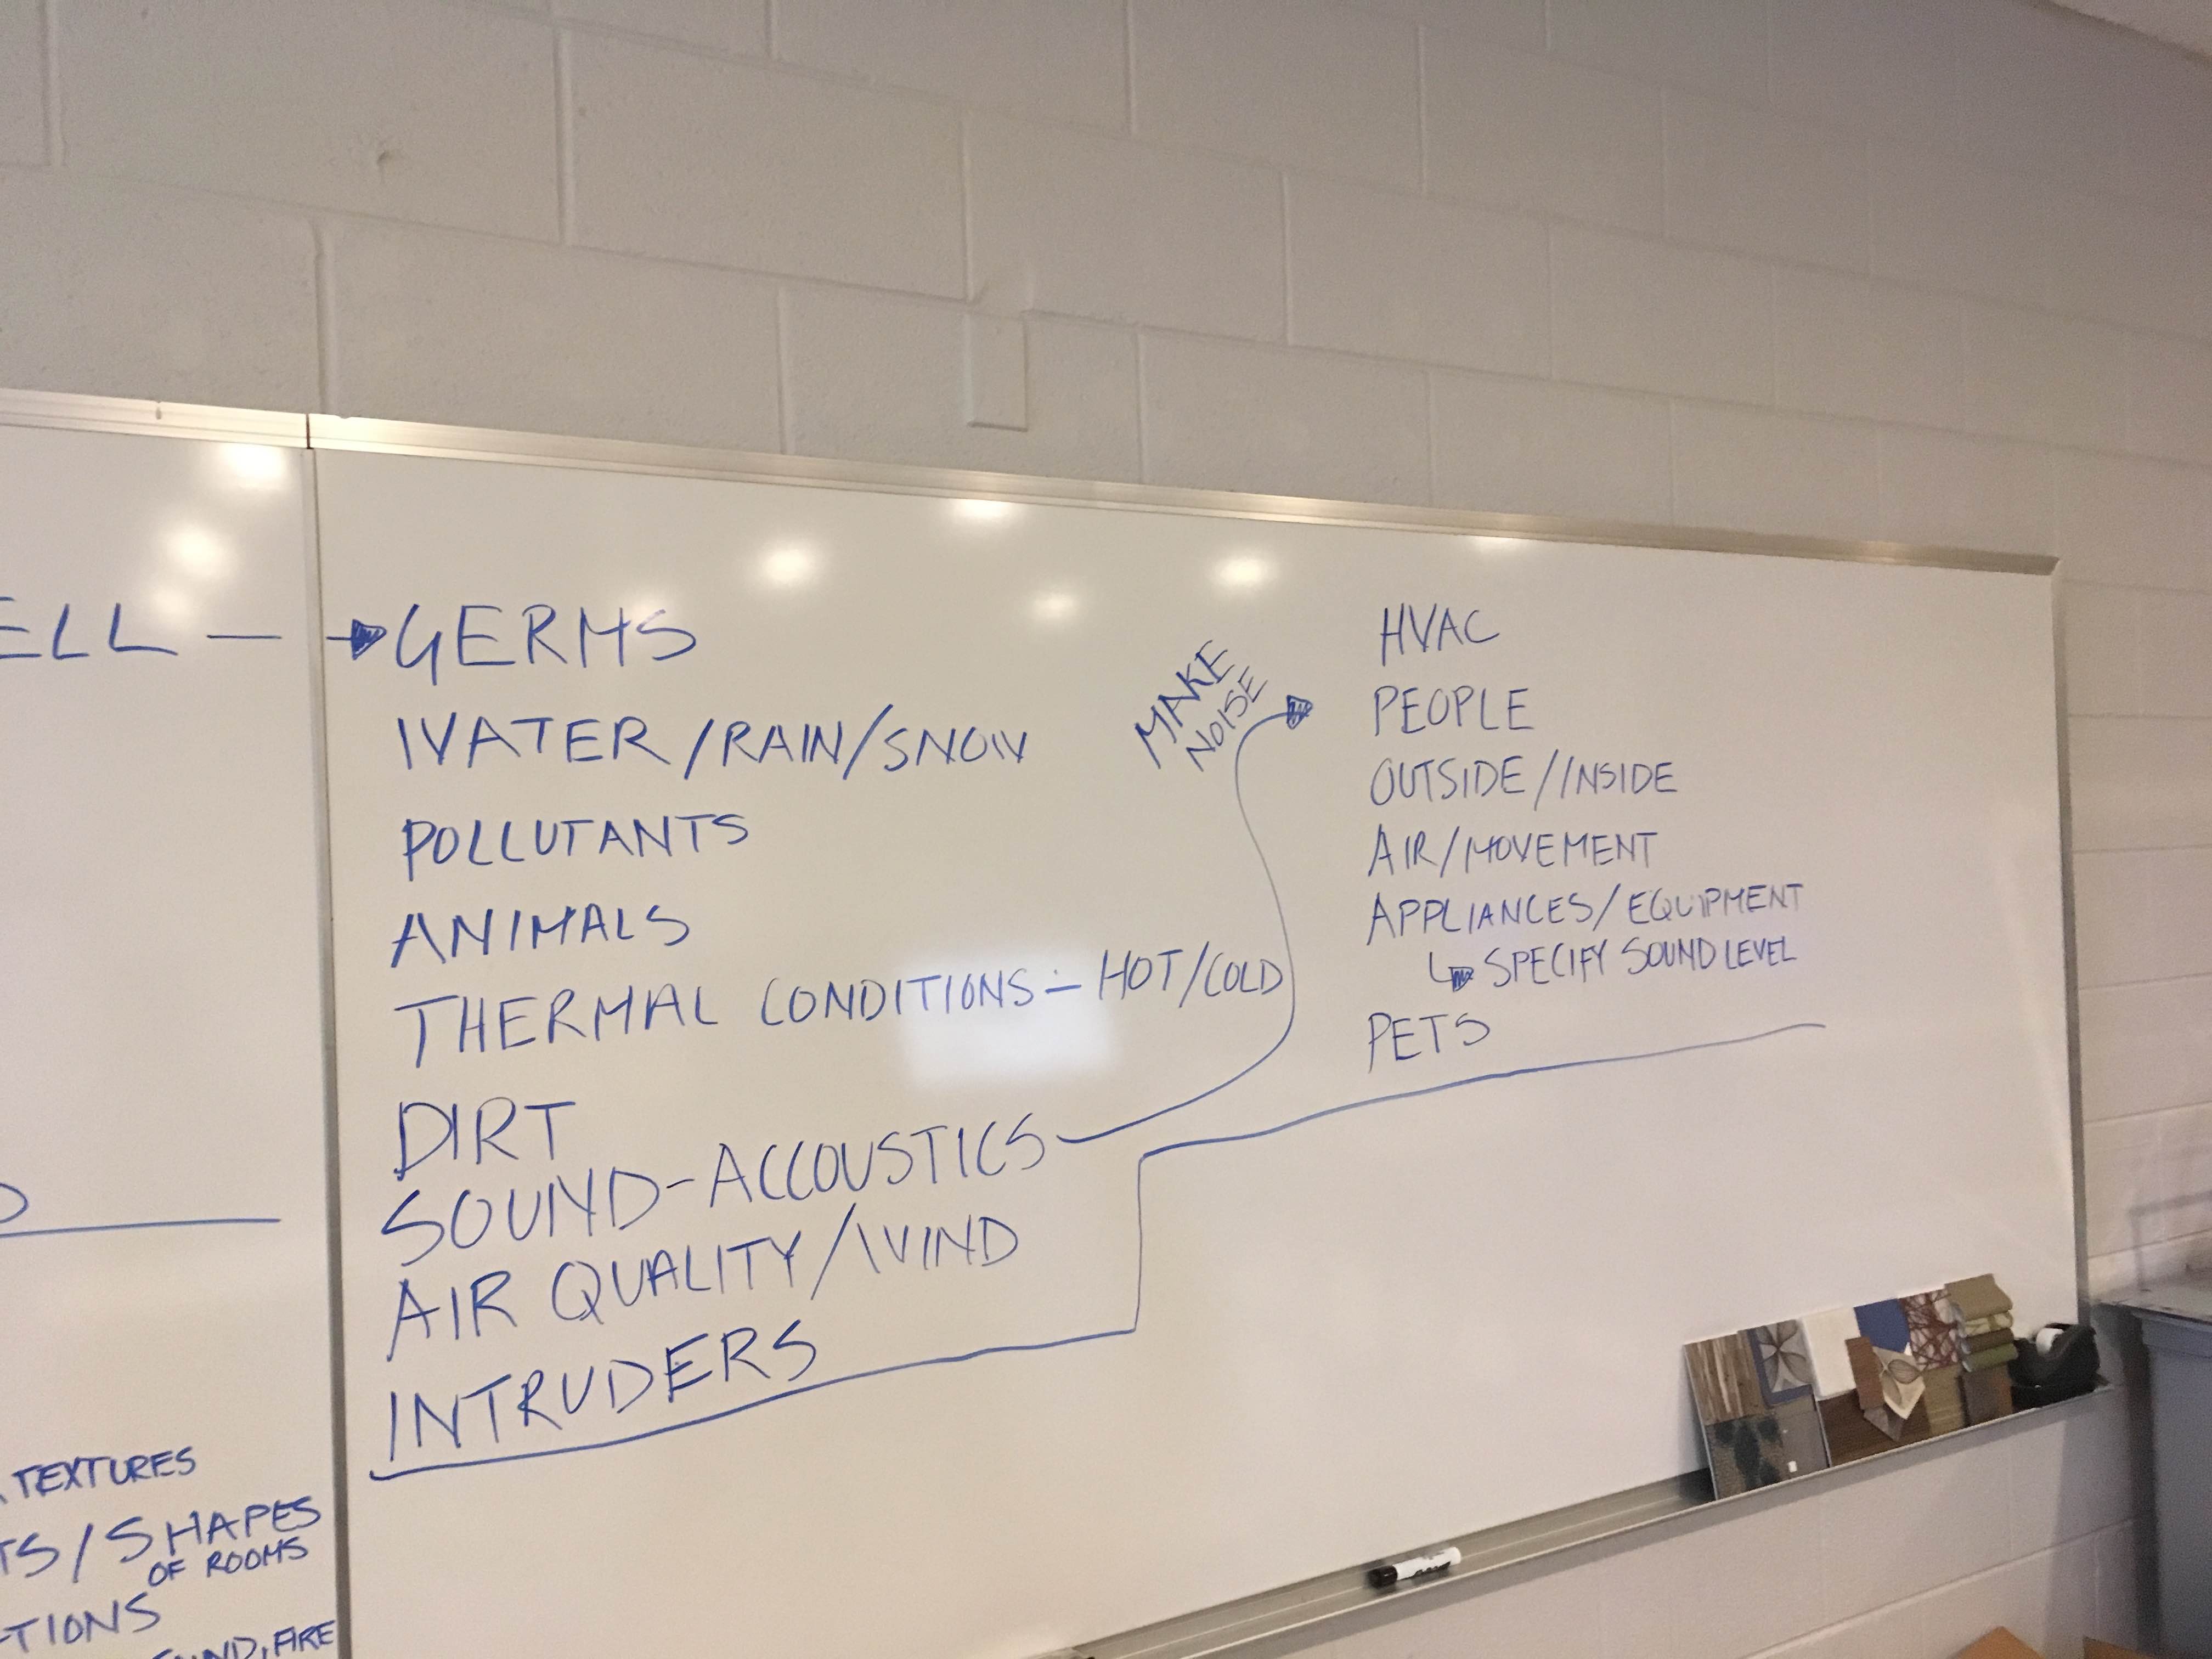 GERMS
WATER/RAIN/SNOW
POLLUTANTS
ANIMALS
THERMAL CONDITIONS - HOT/COLD
DIRT
SOUND-ACCOUSTICS
AIR QUALITY/WIND
INTRUDERS
MAKE
NOISE
HVAC
PEOPLE
OUTSIDE/INSIDE
AIR/MOVEMENT
APPLIANCES/EQUIPMENT
SPECIFY SOUND LEVEL
PETS
TEXTURES
/SHAPES
OF ROOMS
FIRE